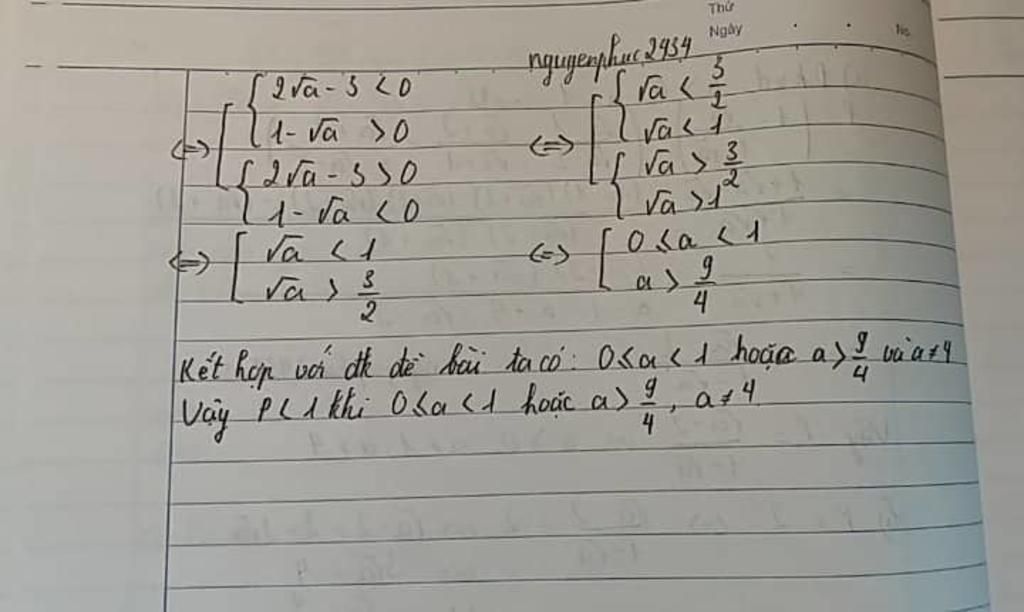 Thứ
Ngày
No
nguyenphuc2434
⇔ [ { 2√a - 3 < 0
1 - √a > 0
{ 2√a - 3 > 0
1 - √a < 0
⇔ [ { √a < 3/2
√a < 1
{ √a > 3/2
√a > 1
⇔ [ √a < 1
√a > 3/2
⇔ [ 0 ≤ a < 1
a > 9/4
Kết hợp với đk đề bài ta có: 0 ≤ a < 1 hoặc a > 9/4 và a ≠ 4
Vậy P < 1 khi 0 ≤ a < 1 hoặc a > 9/4, a ≠ 4